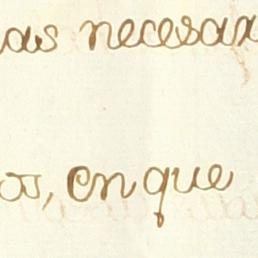 as necesar
os, en que